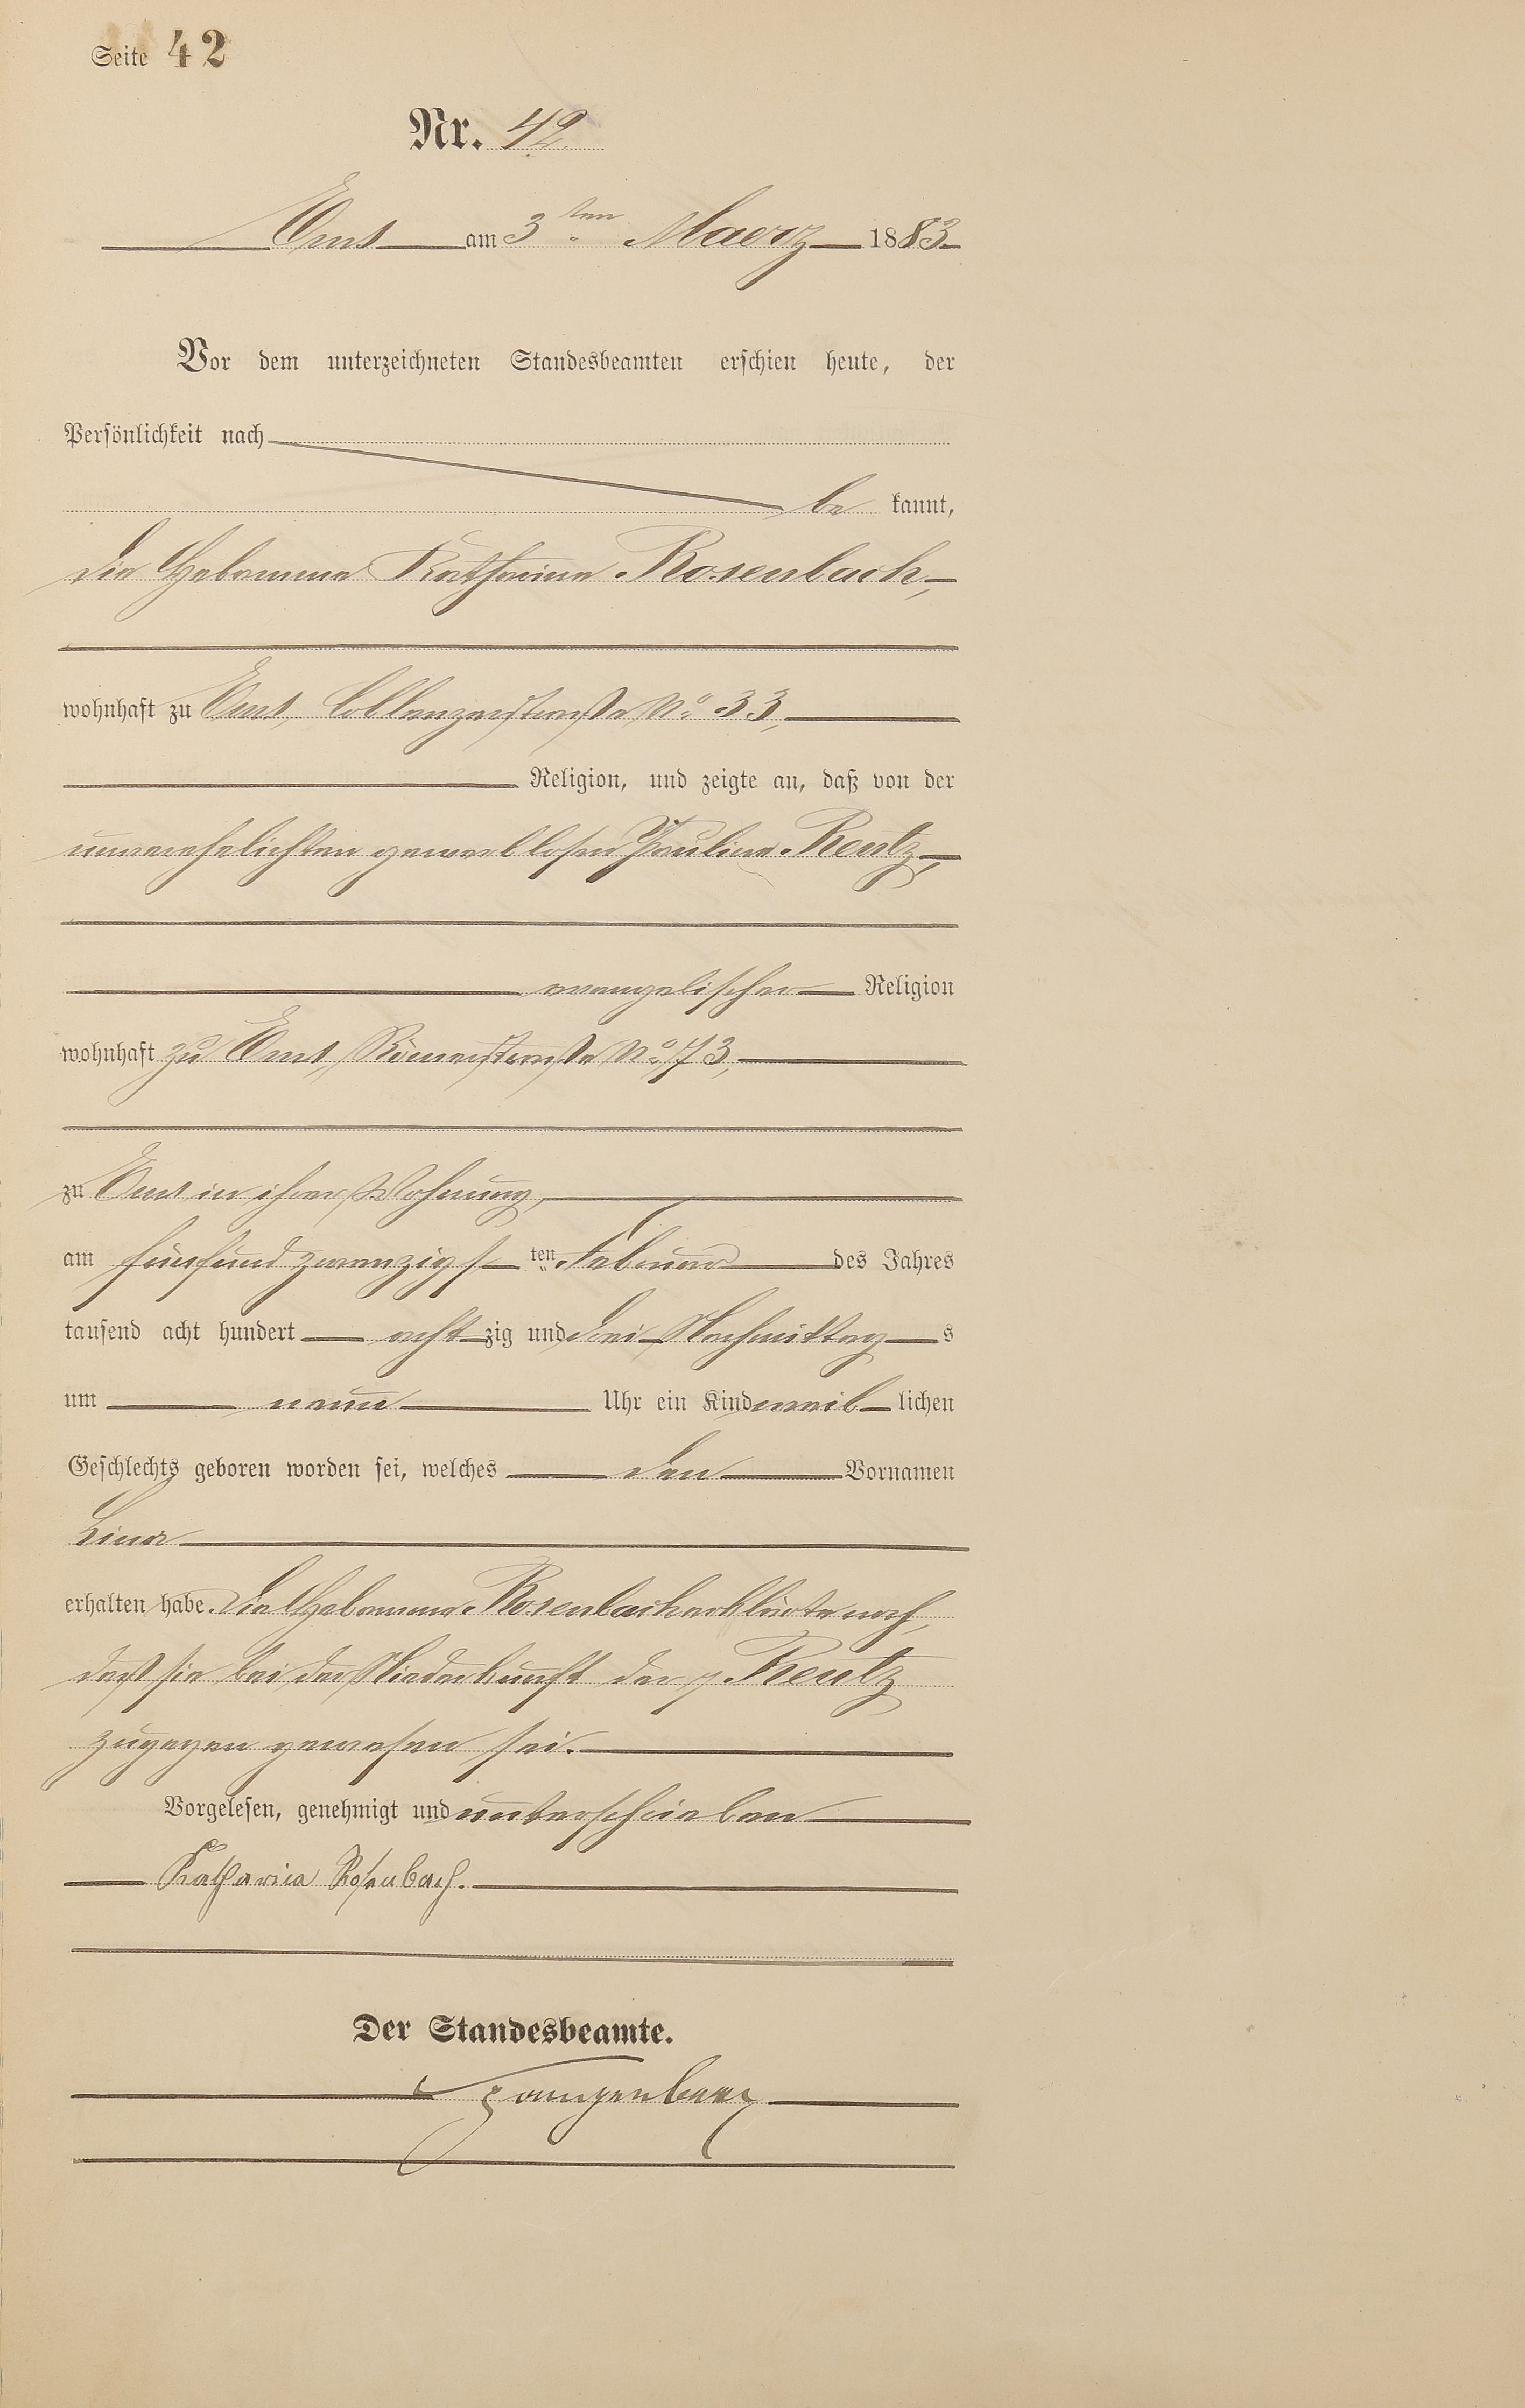 Seite 42
Nr. 42.
Ems am 3ten Maerz 1883
Vor dem unterzeichneten Standesbeamten erschien heute, der
Persönlichkeit nach
be kannt,
die Hebamme Katharina Rosenbach,
wohnhaft zu Ems, Coblenzerstraße No 33,
Religion, und zeigte an, daß von der
unverehelichten gewerblosen Pauline Reutz,
evangelischer Religion
wohnhaft zu Ems, Römerstraße No 73,
zu Ems in ihrer Wohnung,
am fünfundzwanzigsten Februar des Jahres
tausend acht hundert achtzig und drei Nachmittags
um neun Uhr ein Kind weiblichen
Geschlechts geboren worden sei, welches den Vornamen
Lina
erhalten habe. Die Hebamme Rosenbach erklärte noch,
daß sie bei der Niederkunft der p. Reutz
zugegen gewesen sei.
Vorgelesen, genehmigt und unterschrieben
Katharina Rosenbach.
Der Standesbeamte.